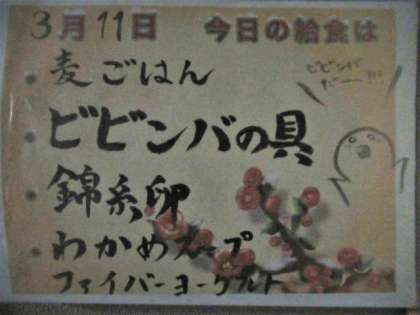 3月11日 今日の給食は
麦ごはん
ビビンバ
だー!!!
ビビンバの具
錦糸卵
わかめスープ
ファイバーヨーグルト